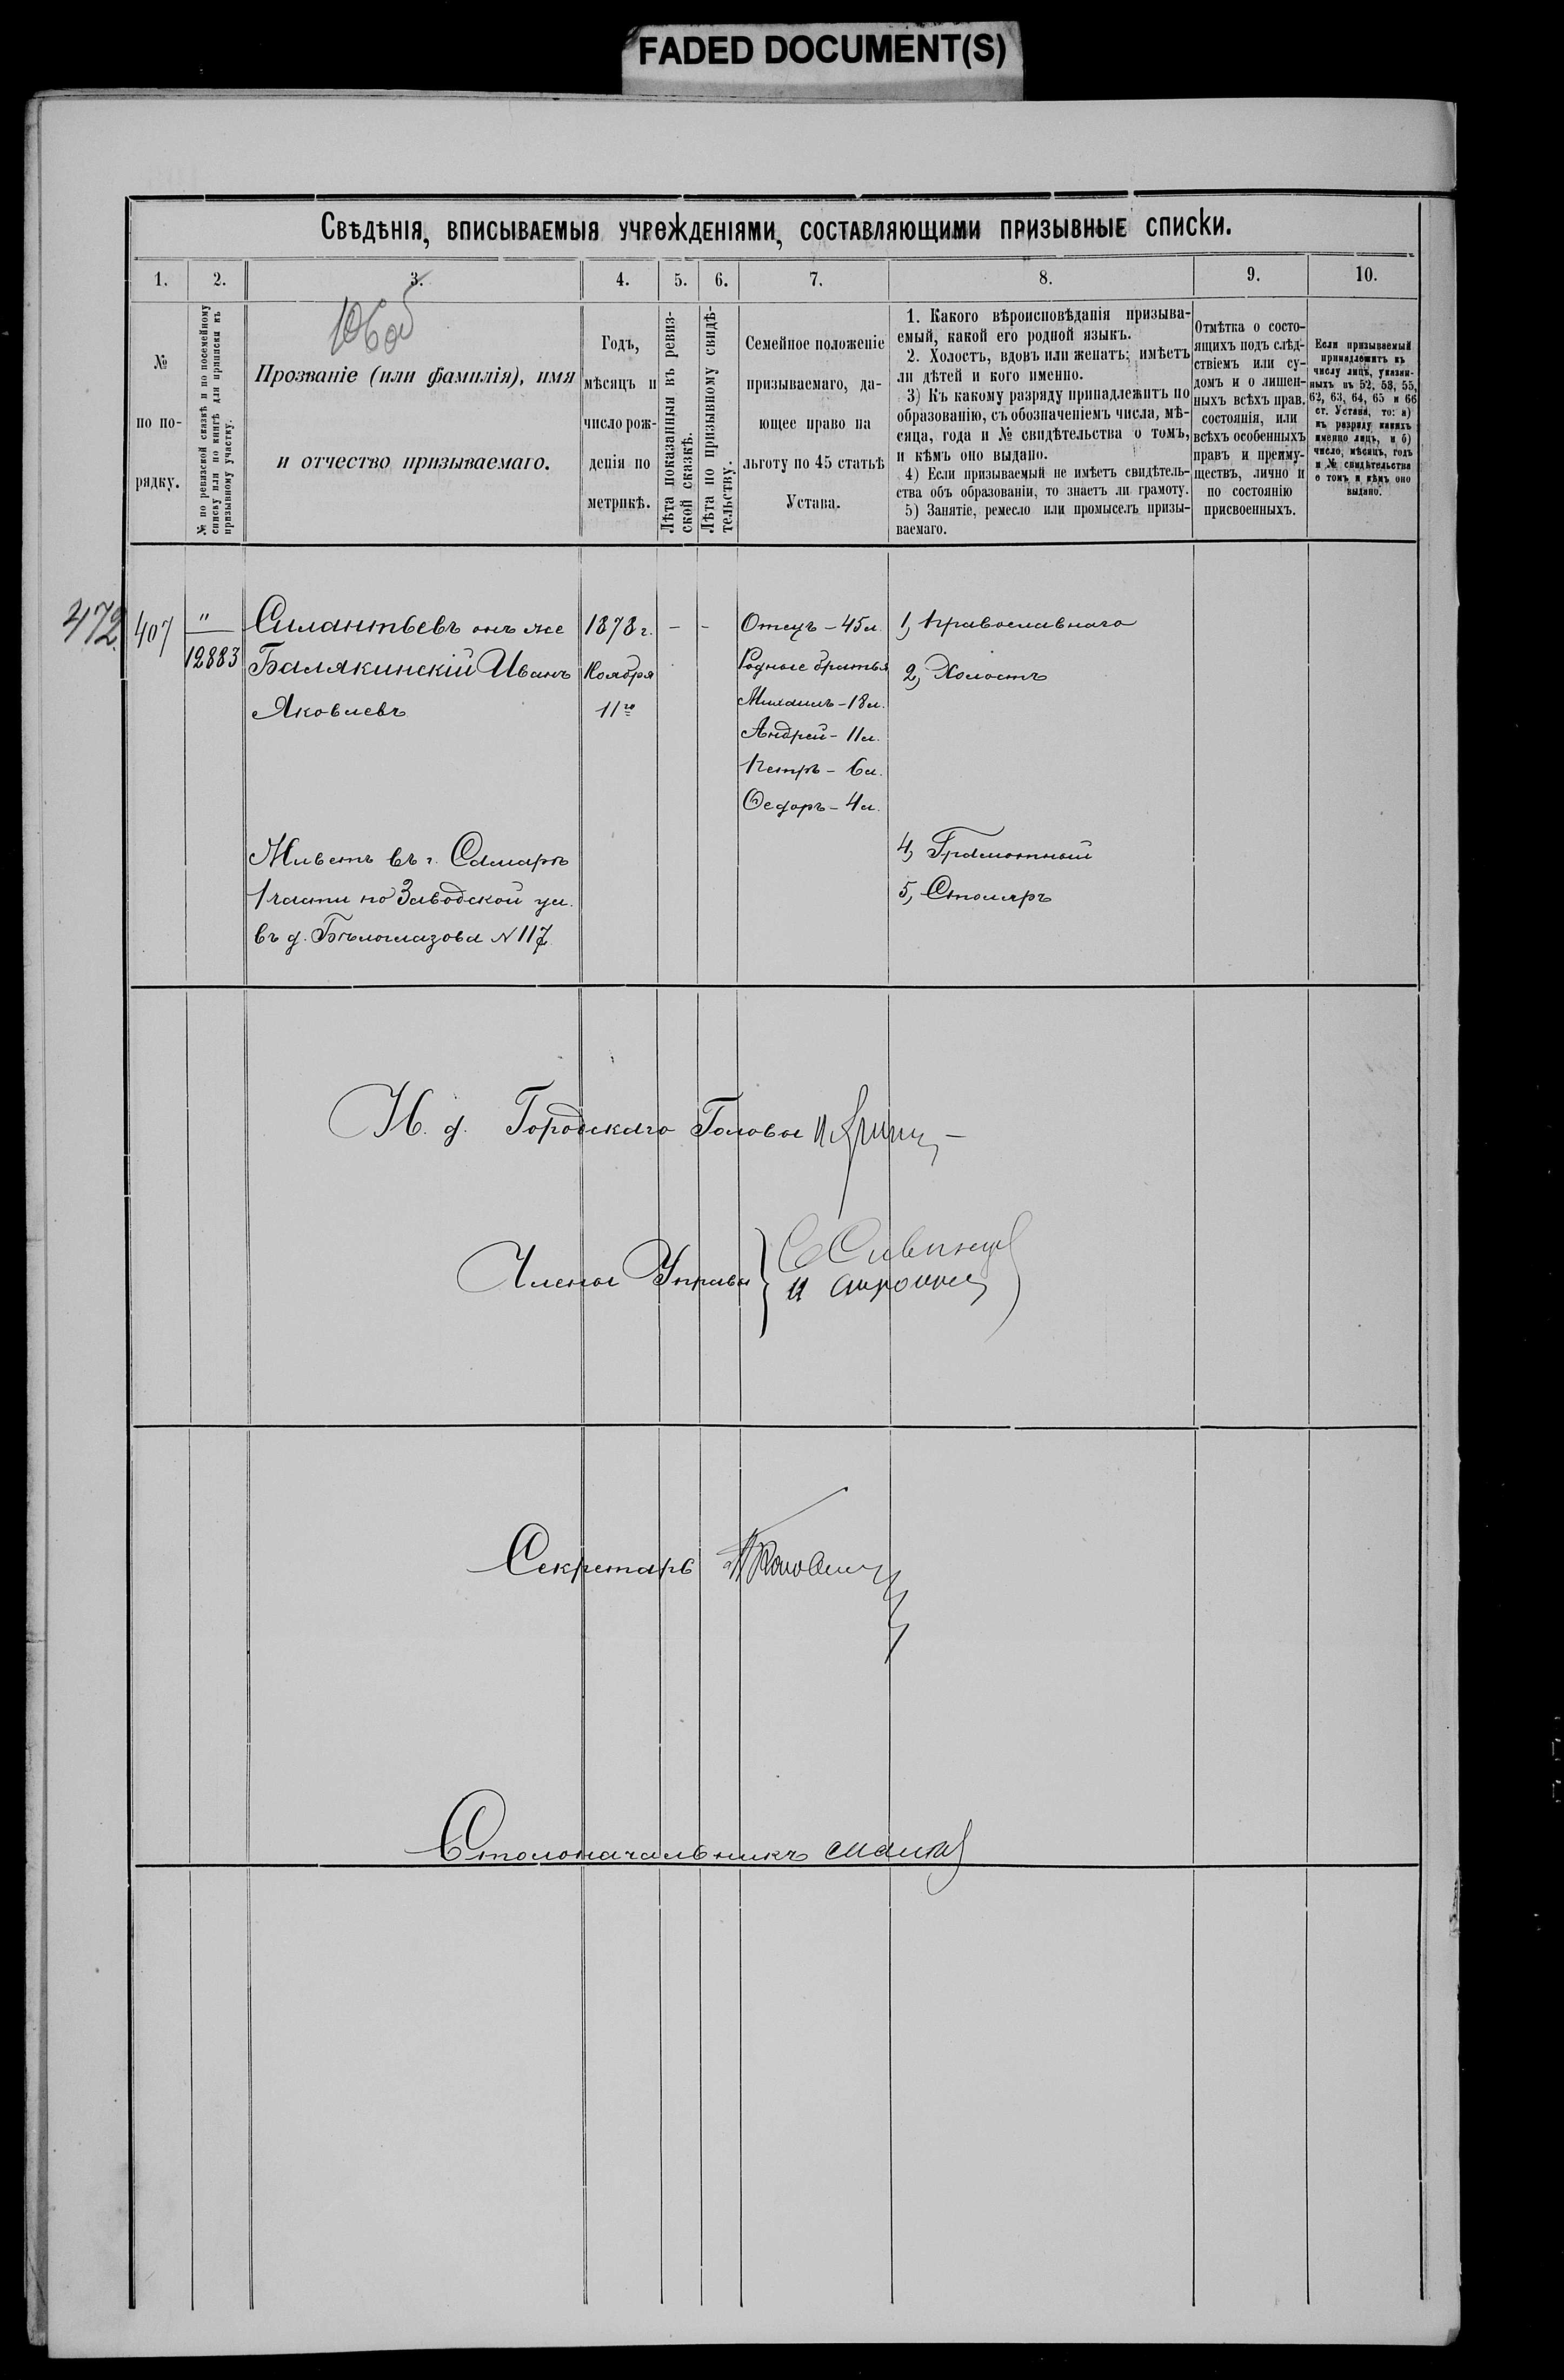 FADED DOCUMENT(S)
Свѣдѣнія, вписываемыя учрежденіями, составляющими призывные списки.
1. 2. 3. 4. 5. 6. 7. 8. 9. 10.
№
по по-
рядку.
№ по ревизской сказкѣ и по посемейному
списку или по книгѣ для приписки къ
призывному участку.
Прозваніе (или фамилія), имя
и отчество призываемаго.
Годъ,
мѣсяцъ и
число рож-
денія по
метрикѣ.
Лѣта показанныя въ ревиз-
ской сказкѣ.
Лѣта по призывному свидѣ-
тельству.
Семейное положеніе
призываемаго, да-
ющее право на
льготу по 45 статьѣ
Устава.
1. Какого вѣроисповѣданія призыва-
емый, какой его родной языкъ.
2. Холостъ, вдовъ или женатъ; имѣетъ
ли дѣтей и кого именно.
3) Къ какому разряду принадлежитъ по
образованію, съ обозначеніемъ числа, мѣ-
сяца, года и № свидѣтельства о томъ,
и кѣмъ оно выдано.
4) Если призываемый не имѣетъ свидѣтель-
ства объ образованіи, то знаетъ ли грамоту.
5) Занятіе, ремесло или промыселъ призы-
ваемаго.
Отмѣтка о состо-
ящихъ подъ слѣд-
ствіемъ или су-
домъ и о лишен-
ныхъ всѣхъ прав.
состоянія, или
всѣхъ особенныхъ
правъ и преиму-
ществъ, лично и
по состоянію
присвоенныхъ.
Если призываемый
принадлежитъ къ
числу лицъ, указан-
ныхъ въ 52, 53, 55,
62, 63, 64, 65 и 66
ст. Устава, то: а)
къ разряду какихъ
именно лицъ, и б)
число, мѣсяцъ, годъ
и № свидѣтельства
о томъ и кѣмъ оно
выдано.
472.
407
"
12883
Силантьевъ онъ же
Балякинскій Иванъ
Яковлевъ
Живетъ въ г. Самарѣ
1 части по Заводской ул.
въ д. Бѣлоглазова N 117.
1878 г.
Ноября
11го
-
-
Отецъ - 45 л.
Родные братья
Михаилъ - 18 л.
Андрей - 11 л.
Петръ - 6 л.
Ѳедоръ - 4 л.
1, Православнаго
2, Холостъ
4, Грамотный
5, Столяръ
И. д. Городскаго Головы
Члены Управы
Секретарь
Столоначальникъ